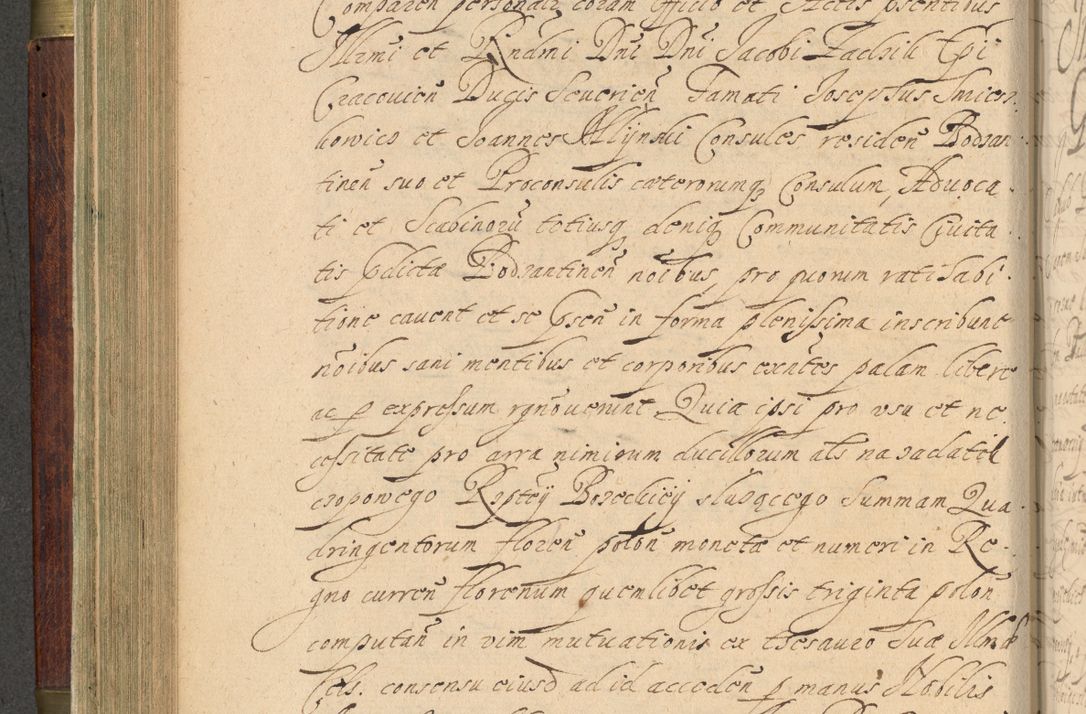 Comparen personalr coram Officio et Actis psentibus
Illrmi et Rndmi Dni Dni Jacobi Zadzik Epi
Cracovien Ducis Severien Famati Josephus Smier
kowicz et Joannes Mlynski Consules residen Bodzan
tinen suo et Proconsulis caeterorumq Consulum, Advoca
ti et Scabinoru totiusq deniq Communitatis Civita
tis pdictae Bodzantinen noibus, pro quorum ratihabi
tione cavent et se psen in forma plenissima inscribunt
noibus sani mentibus et corporibus exntes palam libere
ac p expressum rgnoverunt Quia ipsi pro usu et ne
cessitate pro arra nimirum ducillorum als na zadatek
czopowego Rzptey Boreckiey sluzącego Summam Qua
dringentorum floren polon moneta et numeri in Re
gno curren florenum quemlibet grossis triginta polon
computan in vim mutuationis ex thesauro Suae Illmae
Cels. consensu eiusd ad id acceden p manus Nobilis